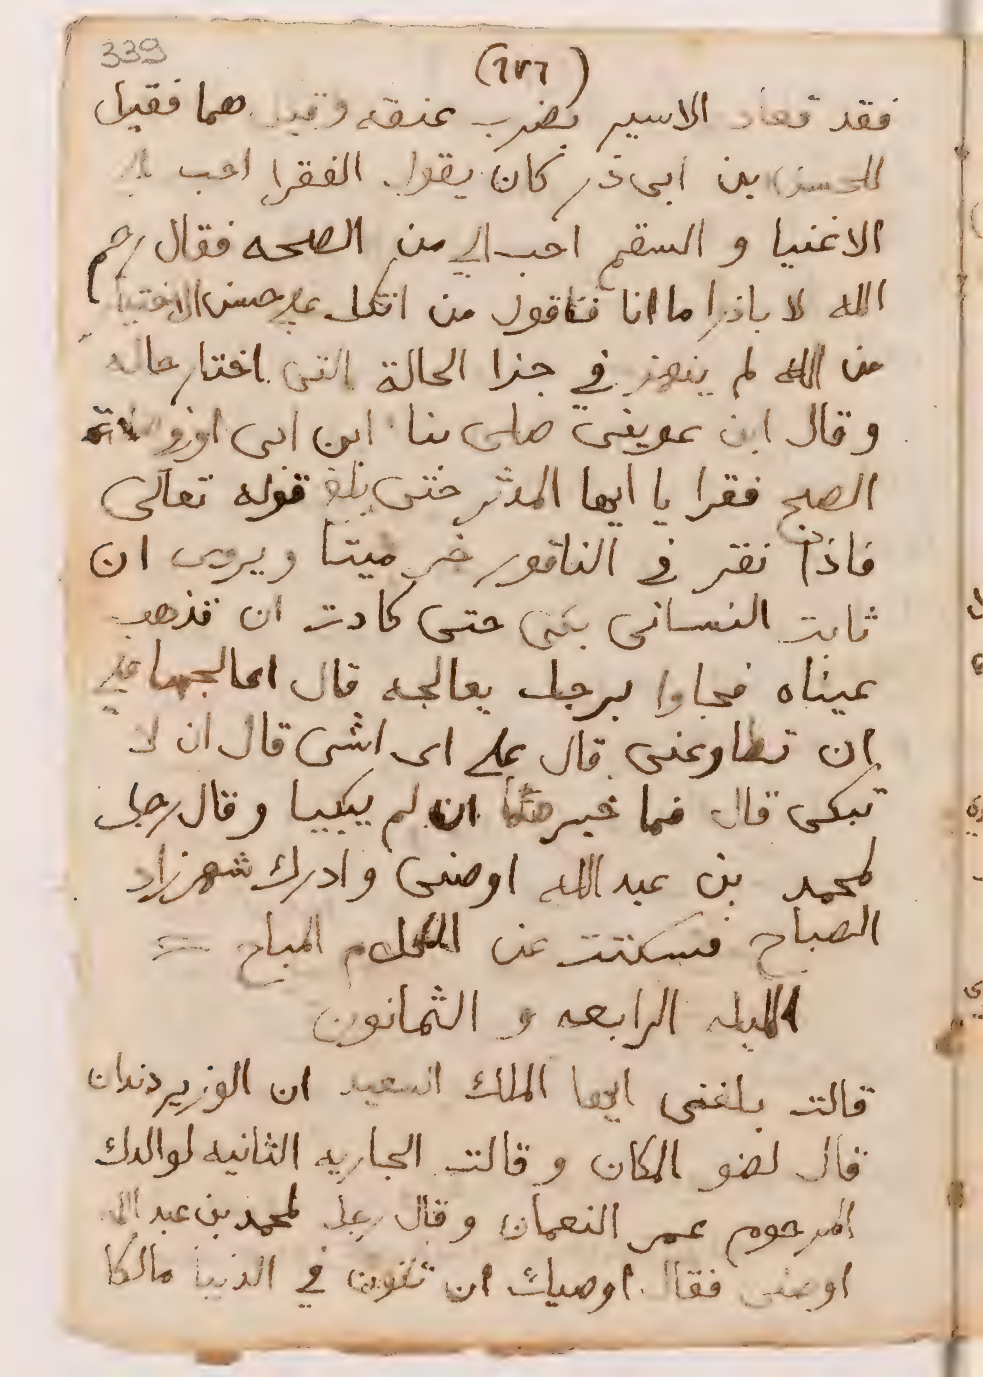 339
(٦٢٦)
فقد تعاد الاسير بضرب عنقه وقيل هما فقيل
للحسن بن ابى ذر كان يقول الفقرا احب الى
الاغنيا و السقم احب الي من الصحه فقال رحم
الله لا باذرا ما انا فناقول من اتكل على حسن الاختيا
من الله لم في جذا الحالة التى اختار حاله
و قال ابن عوينى صلى بنا ابن ابى اوزو
الصبح فقرا يا ايها المدثر حتى بلغ قوله تعالى
فاذا نقر في الناقور خر ميتا ويروى ان
ثابت النسانى بكى حتى كادت ان تذهب
عيناه فجاوا برجل يعالجه قال اعالجها على
ان تطاوعنى قال على اى اشى قال ان لا
تبكى قال فما خير ان لم يبكيا وقال رجل
لمحمد بن عبد الله اوصنى وادرك شهرزاد
الصباح فسكتت عن الكلام المباح =
الليله الرابعه و الثمانون
قالت بلغنى ايها الملك السعيد ان الوزير دندان
قال لضو المكان و قالت الجاريه الثانيه لوالدك
المرحوم عمر النعمان وقال رجل لمحمد بن عبد الله
اوصنى فقال اوصيك ان تكون في الدنيا مالكا